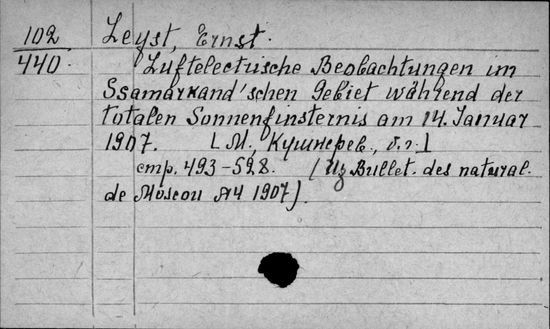 102 Leyst, Ernst.
440. Luftelectrische Beobachtungen im
Ssamarkand'schen Gebiet während der
totalen Sonnenfinsternis am 14. Januar
1907. [М., Кушнерев., б. г.]
стр. 493-598. (Из Bullet. des natural.
de Moscou №4 1907).